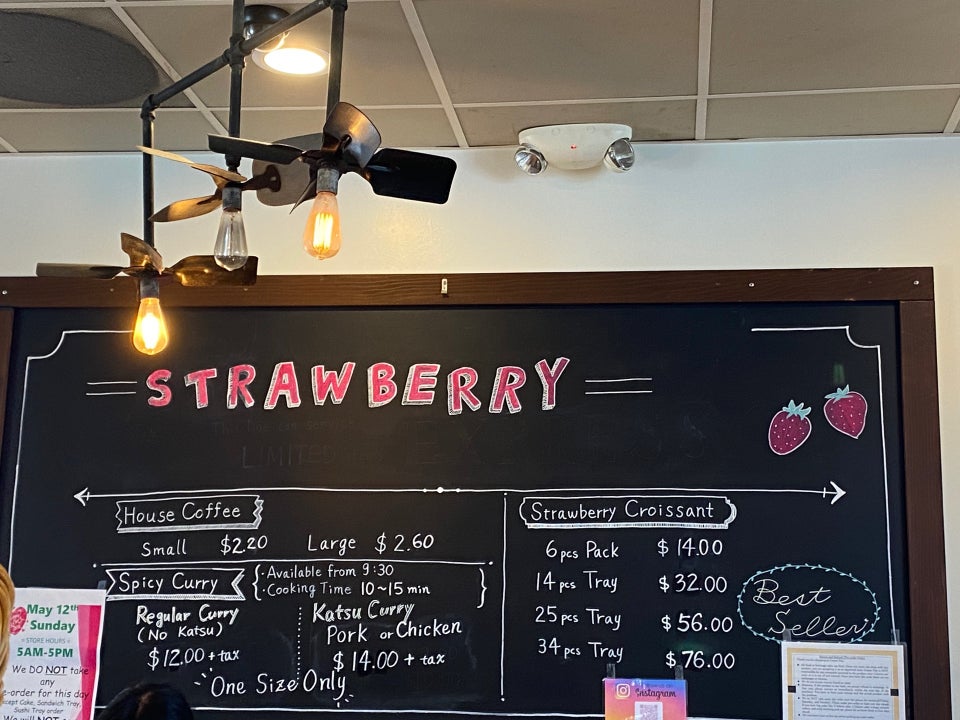 STRAWBERRY
LIMITED
House Coffee
Small $2.20 Large $2.60
Spicy Curry
·Available from 9:30
·Cooking Time 10~15 min
Regular Curry
(No Katsu)
$12.00 + tax
Katsu Curry
Pork or Chicken
$14.00 + tax
One Size Only
Strawberry Croissant
6 pcs Pack $14.00
14 pcs Tray $32.00
25 pcs Tray $56.00
34 pcs Tray $76.00
Best
Seller
May 12th
Sunday
STORE HOURS
5AM-5PM
We DO NOT take
any
e-order for this day
cept Cake, Sandwich Tray,
Sushi Tray order
We will NOT
Instagram